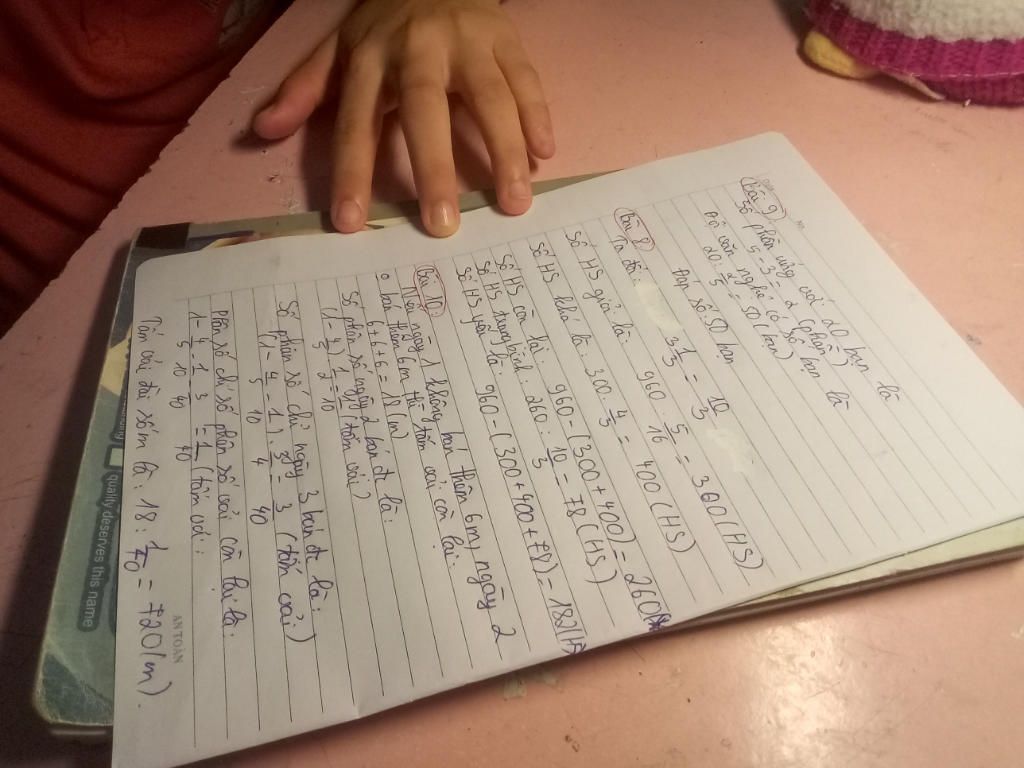 Bài 9
Số phần ứng với 20 bạn là
5 - 3 = 2 (phần)
Đội văn nghệ có số bạn là
20 : 2/5 = 50 (bạn)
Đáp số: 50 bạn
Bài 8
Ta đổi: 3 1/3 = 10/3
Số HS giỏi là: 960 . 5/16 = 300 (HS)
Số HS khá là: 300 . 4/3 = 400 (HS)
Số HS còn lại: 960 - (300 + 400) = 260
Số HS trung bình: 260 : 10/3 = 78 (HS)
Số HS yếu là: 960 - (300 + 400 + 78) = 182 (HS)
Bài 10
Nếu ngày 1 không bán thêm 6m, ngày 2
0 bán thêm 6m thì tấm vải còn lại:
6 + 6 + 6 = 18 (m)
Số phần số ngày 2 bán đc là:
(1 - 4/5) . 1/2 = 1/10 (tấm vải)
Số phần số chỉ ngày 3 bán đc là:
(1 - 4/5 - 1/10) . 3/4 = 3/40 (tấm vải)
Phần số chỉ số phần số vải còn lại là:
1 - 4/5 - 1/10 - 3/40 = 1/40 (tấm vải)
Tấm vải dài số m là: 18 : 1/40 = 720 (m)
AN TOÀN
quality deserves this name